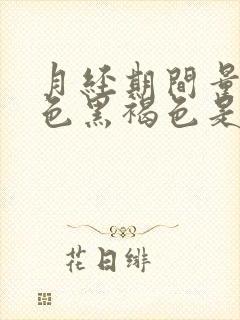 月经期間量
色黑褐色是
花日绯